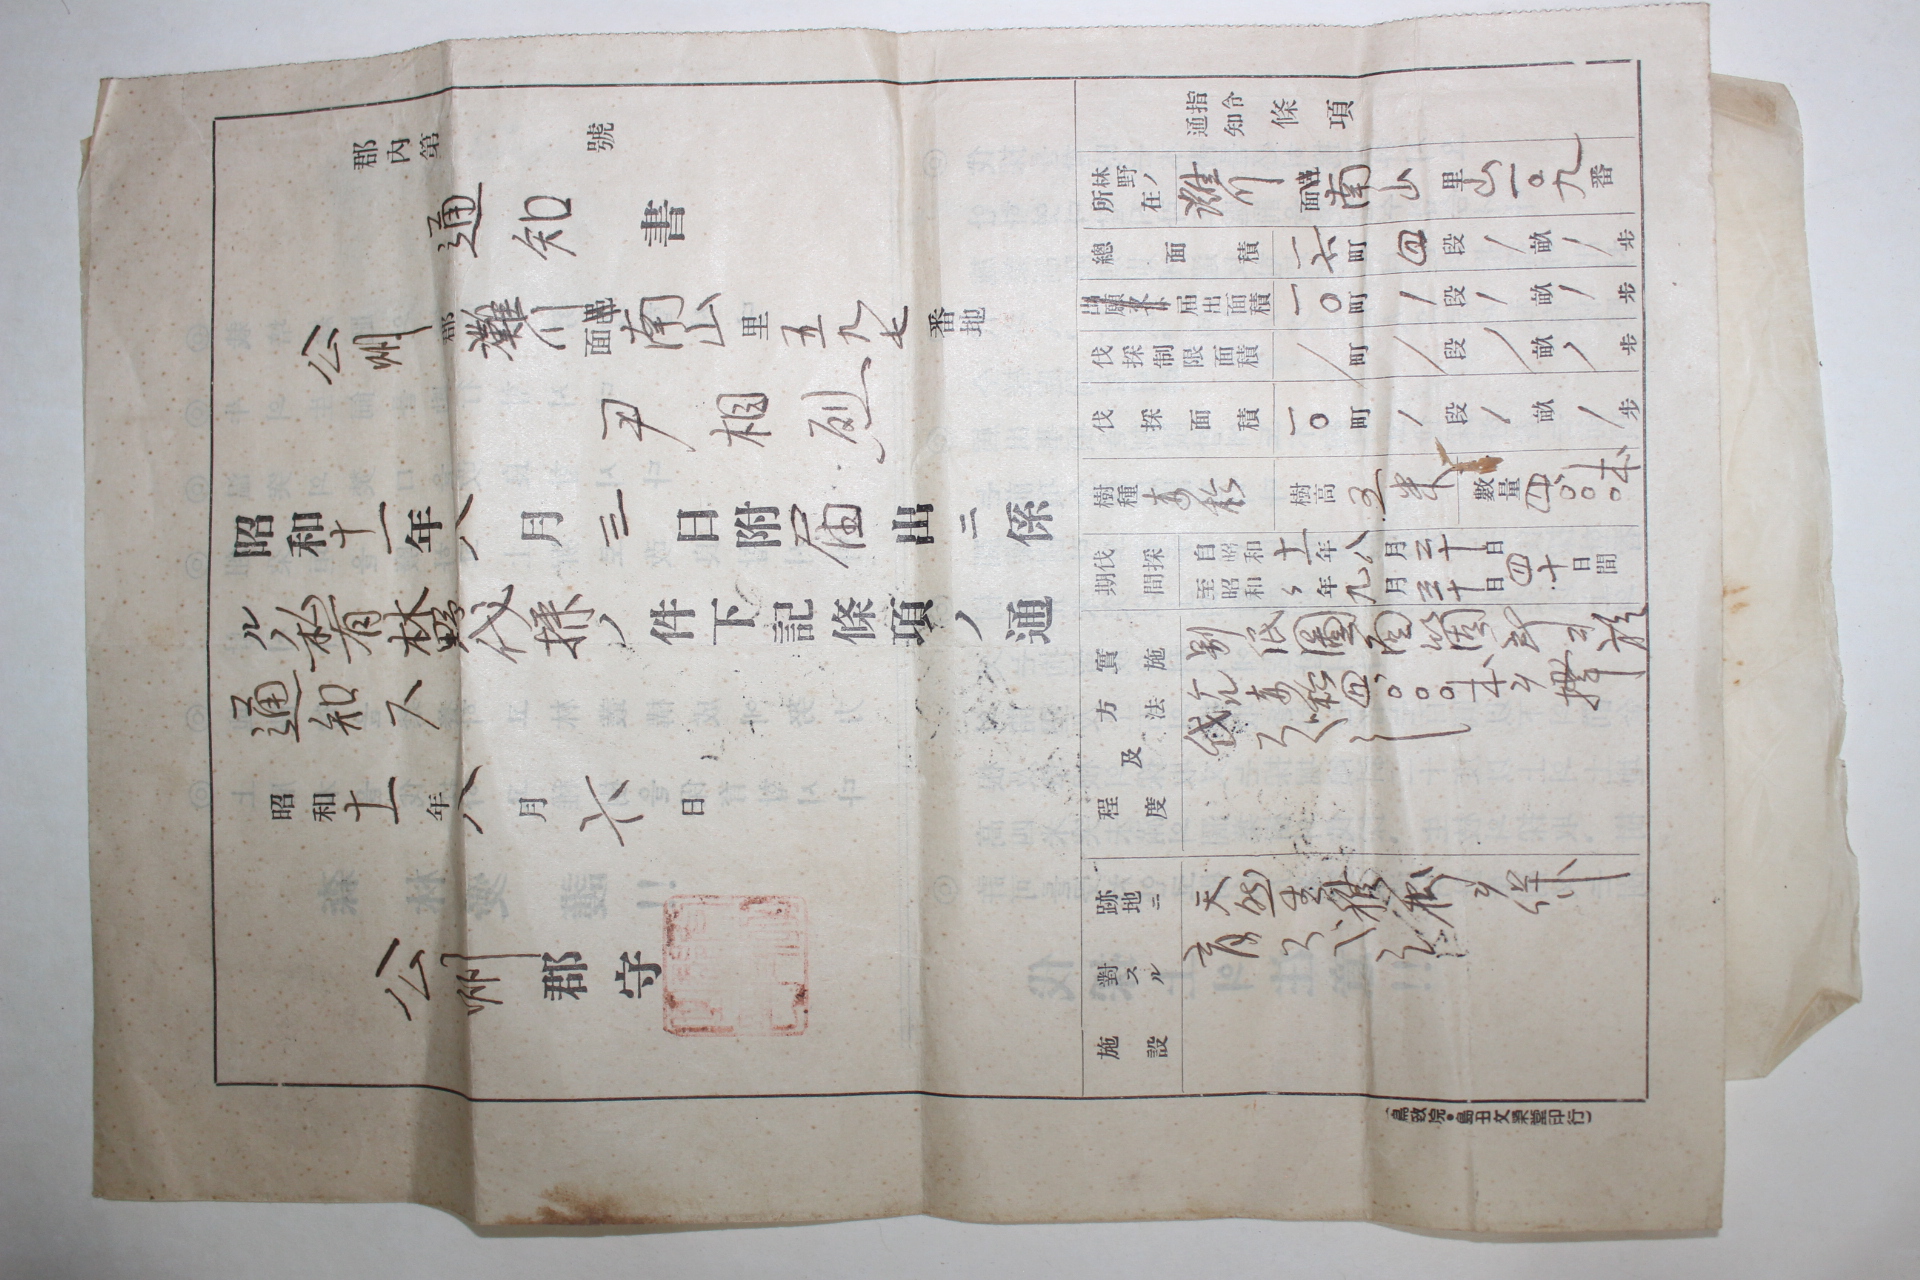 郡內第　　　號
通知書
公州郡灘川面南山里五九七番地
尹相烈
昭和十一年八月三日附屆出ニ係
ル私有林野伐採ノ件下記條項ノ通
通知ス
昭和十一年八月六日
公州郡守
指令通知條項
林野ノ所在
灘川面南山里山一〇九番
總面積
一六町四段／畝／步
出願屆出面積
一〇町／段／畝／步
伐採制限面積
／町／段／畝／步
伐採面積
一〇町／段／畝／步
樹種
赤松
樹高
五米
數量
四〇〇〇本
伐採期間
自昭和十一年八月二十日
至昭和〃年九月三十日
四十日間
實施方法及程度
別紙圖面箇所
赤松四〇〇〇本ヲ擇伐
跡地ニ對スル施設
天然生稚樹ヲ
育
(鳥致院・島田文榮堂印行)